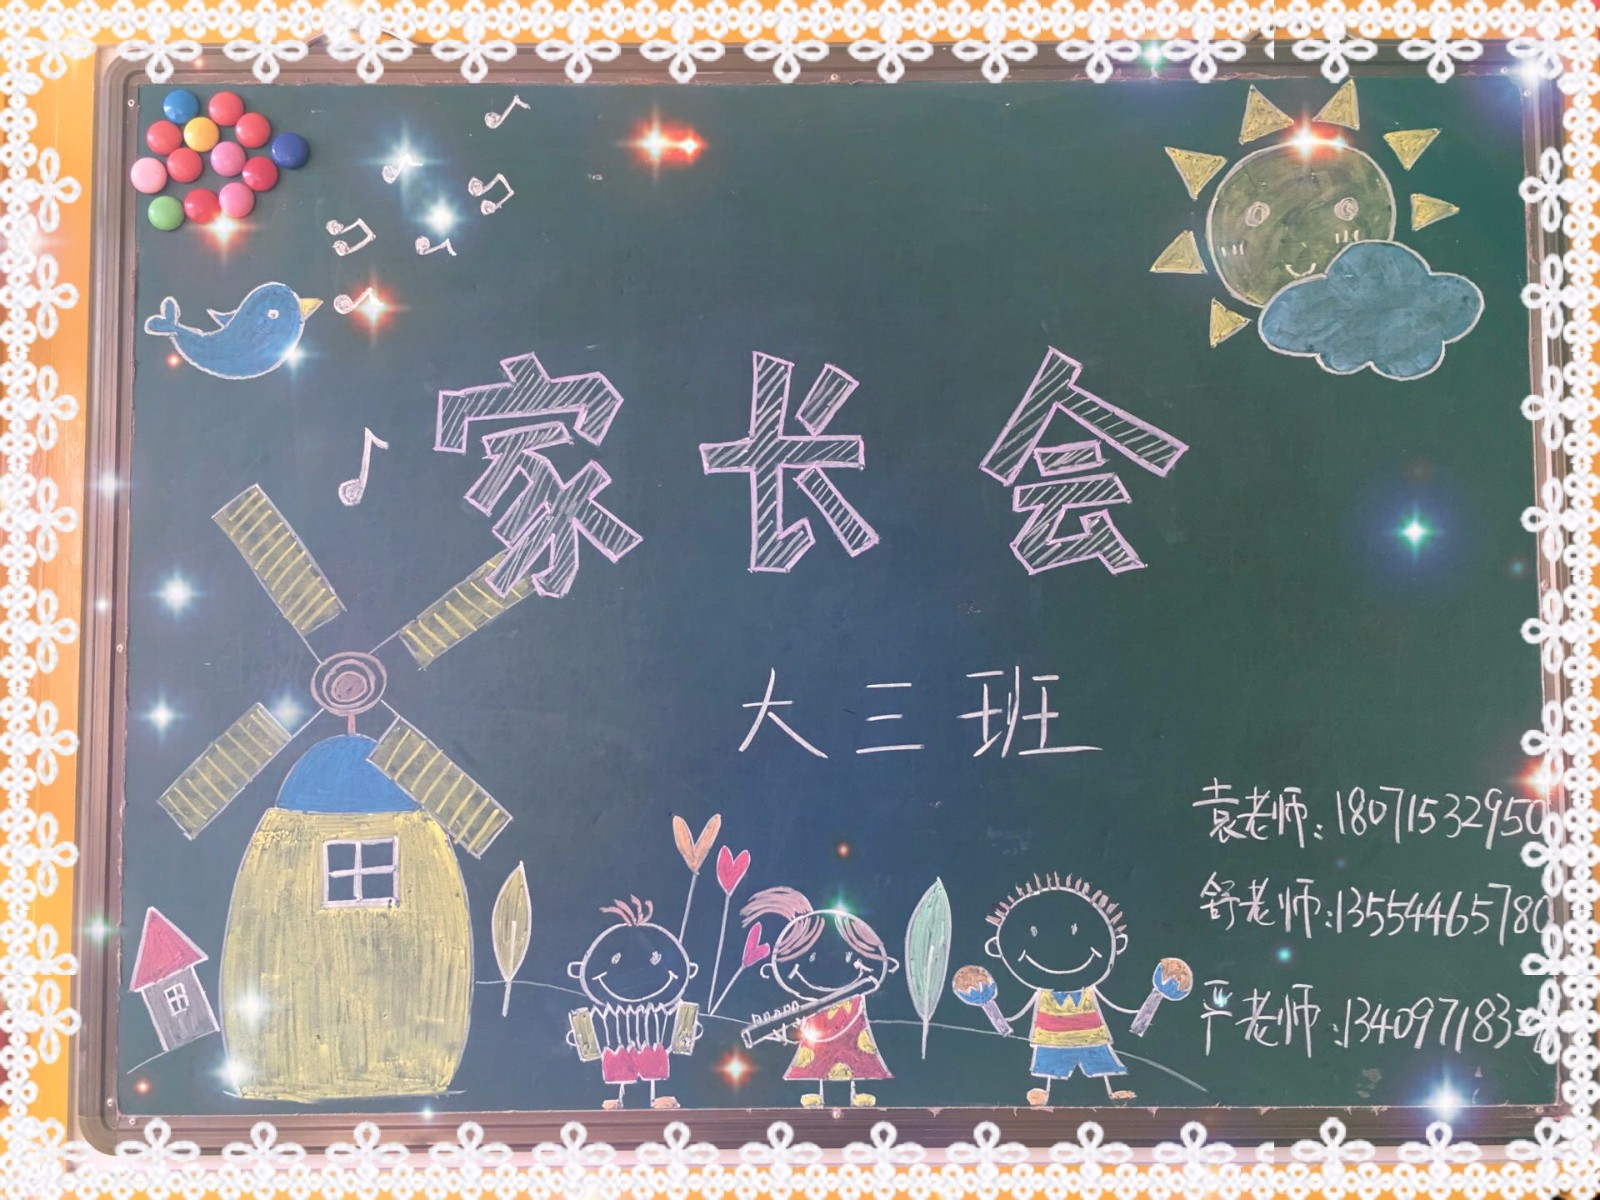 家长会
大三班
袁老师：18071532950
舒老师：13554465780
严老师：134097183